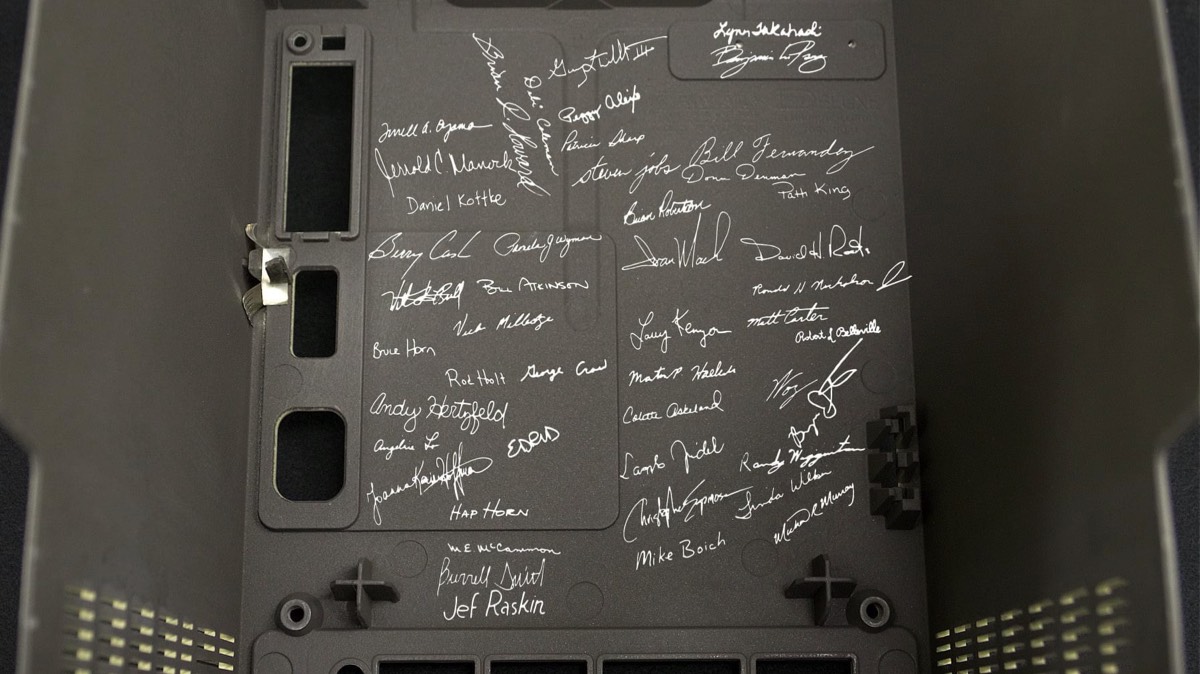 Lynn Takahashi
Benjamin L. Pang
Guy L. Tribble III
Brian R. Howard
Deb Coleman
Peggy Alexio
Patricia Sharp
Terrell A. Oyama
Jerrold C. Manock
Daniel Kottke
steven jobs
Bill Fernandez
Donn Denman
Patti King
Brian Robertson
Berry Cash
Pamela J Wyman
Ivan Mach
David H Roots
Bill Atkinson
Ronald H Nicholson Jr
Vicki Milledge
Larry Kenyon
Matt Carter
Robert L Belleville
Bruce Horn
Rod Holt
George Crow
Martin P. Haeberli
Woz
Andy Hertzfeld
Colette Askeland
Angeline Lo
Randy Wigginton
Joanna Karine Hoffman
Linda Wilkin
Hap Horn
Christopher Espinosa
Michael R Murray
Mike Boich
M.E. McCammon
Burrell Smith
Jef Raskin